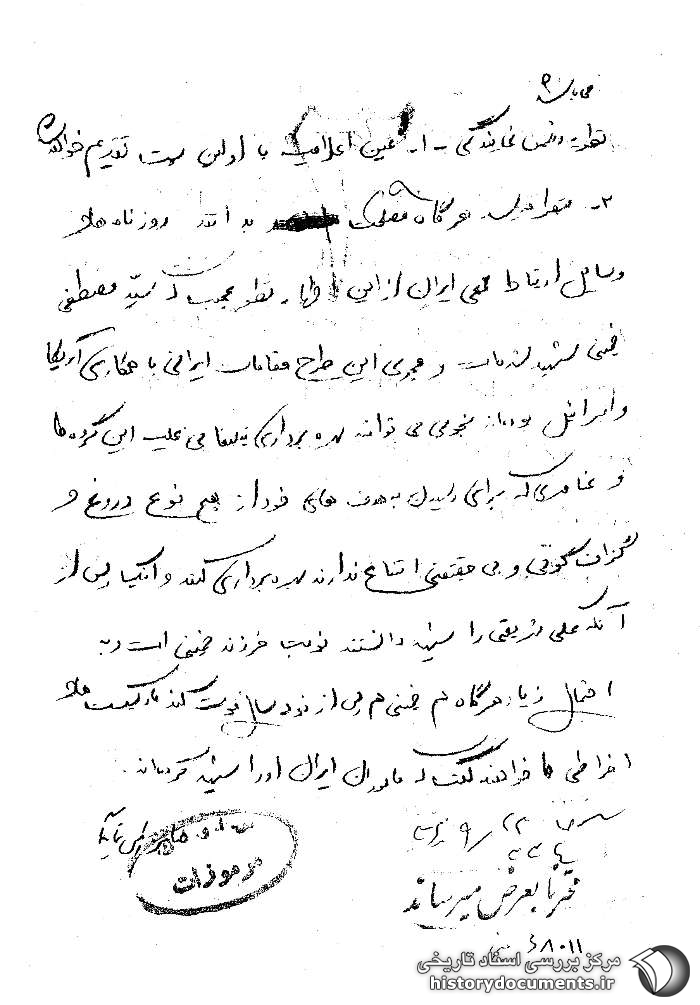 می‌باشد
نظریه رهبر نمایندگی - ۱- عین اعلامیه با اولین پست تقدیم خواهد شد
۲- هرگاه مصلحت بدانند روزنامه‌ها و
وسایل ارتباط جمعی ایران از این اظهار نظر عجیب که سید مصطفی
خمینی شهید شده است و مجری این طرح مقامات ایرانی با همکاری آمریکا
و اسرائیل بوده‌اند بنحوی می توانند بهره برداری تبلیغاتی علیه این گروه‌ها
و عناصری که برای رسیدن به هدف های خود از هیچ نوع دروغ و
گزاف گوئی و بی حقیقتی امتناع ندارند بهره برداری کنند و اینک پس از
آنکه علی شریعتی را شهید دانستند نوبت فرزند خمینی است و به
احتمال زیاد هرگاه هم خمینی هم پس از نود سال فوت کند مارکسیست‌ها و
افراطی ها خواهند گفت که ماموران ایران او را شهید کرده‌اند.
مرموزات
بعرض میرساند
۶۸۰۱۱
مرکز بررسی اسناد تاریخی
historydocuments.ir